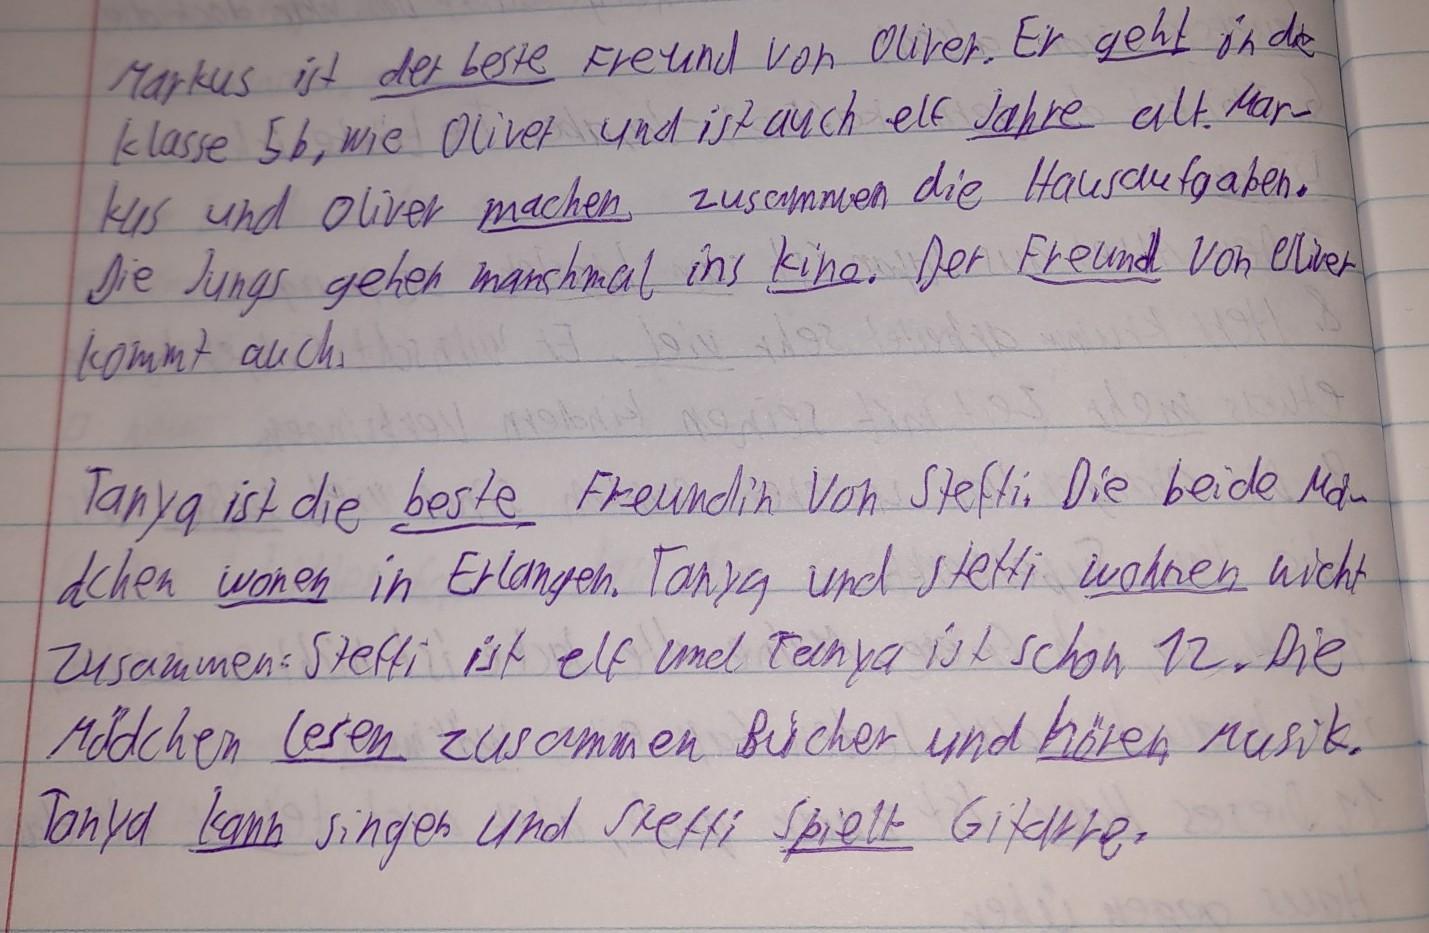 Markus ist der beste Freund von Oliver. Er geht in die
Klasse 5b, wie Oliver und ist auch elf Jahre alt. Mar-
kus und Oliver machen zusammen die Hausaufgaben.
Die Jungs gehen manchmal ins Kino. Der Freund von Oliver
kommt auch.
Tanya ist die beste Freundin von Steffi. Die beide Mä-
dchen wonen in Erlangen. Tanya und Steffi wohnen nicht
zusammen: Steffi ist elf und Tanya ist schon 12. Die
Mädchen lesen zusammen Bücher und hören Musik.
Tanya kann singen und Steffi spielt Gitarre.